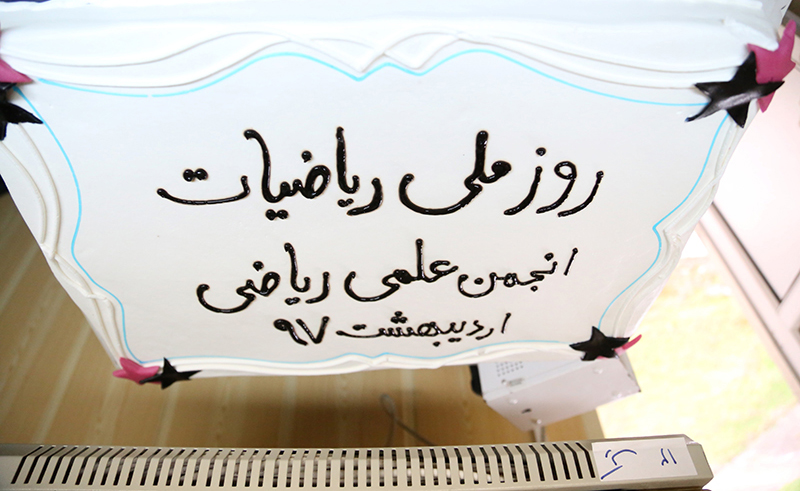 روز ملی ریاضیات
انجمن علمی ریاضی
اردیبهشت ۹۷